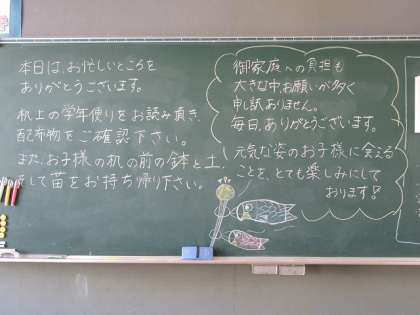 本日は、お忙しいところを
ありがとうございます。
机上の学年便りをお読み頂き、
配布物をご確認下さい。
また、お子様の机の前の鉢と土、
そして苗をお持ち帰り下さい。
御家庭への負担も
大きな中お願いが多く
申し訳ありません。
毎日、ありがとうございます。
元気な姿のお子様に会える
ことを、とても楽しみにして
おります!